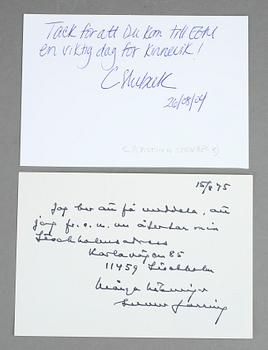 Tack för att Du kom till EGM
en viktig dag för Kinnevik!
26/08/04
15/8 75
Jag ber att få meddela, att
jag fr.o.m. nu återtar min
Stockholmsadress
Karlavägen 85
11459 Stockholm
Många hälsningar
Gunnar Jarring